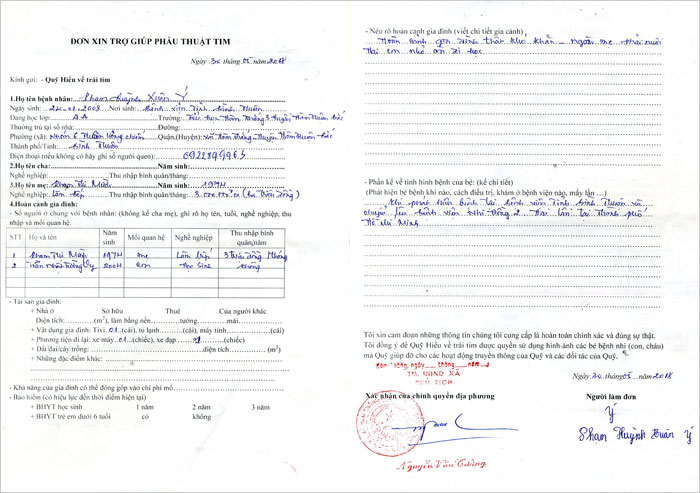 ĐƠN XIN TRỢ GIÚP PHẪU THUẬT TIM
Ngày 30 tháng 05 năm 2018
Kính gửi: - Quỹ Hiểu về trái tim
1.Họ tên bệnh nhân: Phạm Huỳnh Xuân Ý
Ngày sinh: 24-01-2008 Nơi sinh: Bệnh viện tỉnh Bình Thuận
Đang học lớp: 4A Trường: Tiểu học Hàm Thắng 3 huyện Hàm Thuận Bắc
Thường trú tại số nhà: Đường:
Phường (xã): Quận,(Huyện): xã Hàm Thắng - Huyện Hàm Thuận Bắc
Thành phố/Tỉnh: Bình Thuận
Điện thoại (nếu không có hãy ghi số người quen):
2.Họ tên cha: Năm sinh:
Nghề nghiệp: Thu nhập bình quân/tháng:
3.Họ tên mẹ: Phạm Thị Mận Năm sinh: 1974
Nghề nghiệp: Thu nhập bình quân/tháng: 3.000.000 (ba triệu đồng)
4.Hoàn cảnh gia đình:
- Số người ở chung với bệnh nhân: (không kể cha mẹ), ghi rõ họ tên, tuổi, nghề nghiệp, thu
nhập và mối quan hệ.
STT Họ và tên Năm sinh Mối quan hệ Nghề nghiệp Thu nhập bình quân/năm
1 Phạm Thị Mận 1974 mẹ 3 triệu đồng tháng
2 2004 em học sinh không
- Tài sản gia đình:
+ Nhà ở Sở hữu Thuê Của người khác
Diện tích: (m²), làm bằng nền tường mái
+ Vật dụng gia đình: Tivi 01 (cái), tủ lạnh (cái), máy tính (cái)
+ Phương tiện đi lại: xe máy 01 (chiếc), xe đạp (chiếc)
+ Đất đai/cây trồng: diện tích (m²)
+ Những đặc điểm khác:
- Khả năng của gia đình có thể đóng góp vào chi phí mổ
- Bảo hiểm (có hiệu lực đến thời điểm hiện tại)
+ BHYT học sinh 1 năm 2 năm 3 năm
+ BHYT trẻ em dưới 6 tuổi có không
- Nêu rõ hoàn cảnh gia đình (viết chi tiết gia cảnh)
Hoàn cảnh gia đình thật khó khăn - người mẹ phải nuôi
hai em nhỏ ăn đi học
- Phần kể về tình hình bệnh của bé: (kể chi tiết)
(Phát hiện bé bệnh khi nào, cách điều trị, khám ở bệnh viện nào, mấy lần …)
Khi phát hiện bệnh tại bệnh viện tỉnh Bình Thuận và
chuyển lên bệnh viện nhi đồng 2 Hai lần tại thành phố
Hồ Chí Minh
Tôi xin cam đoan những thông tin chúng tôi cung cấp là hoàn toàn chính xác và đúng sự thật.
Tôi đồng ý để Quỹ Hiểu về trái tim được quyền sử dụng hình ảnh các bé bệnh nhi (con, cháu)
mà Quỹ giúp đỡ cho các hoạt động truyền thông của Quỹ và các đối tác của Quỹ.
ngày tháng năm
TM. UBND XÃ
CHỦ TỊCH
Ngày 30 tháng 05 năm 2018
Xác nhận của chính quyền địa phương
Người làm đơn
Ý
Phạm Huỳnh Xuân Ý
Nguyễn Văn Cường